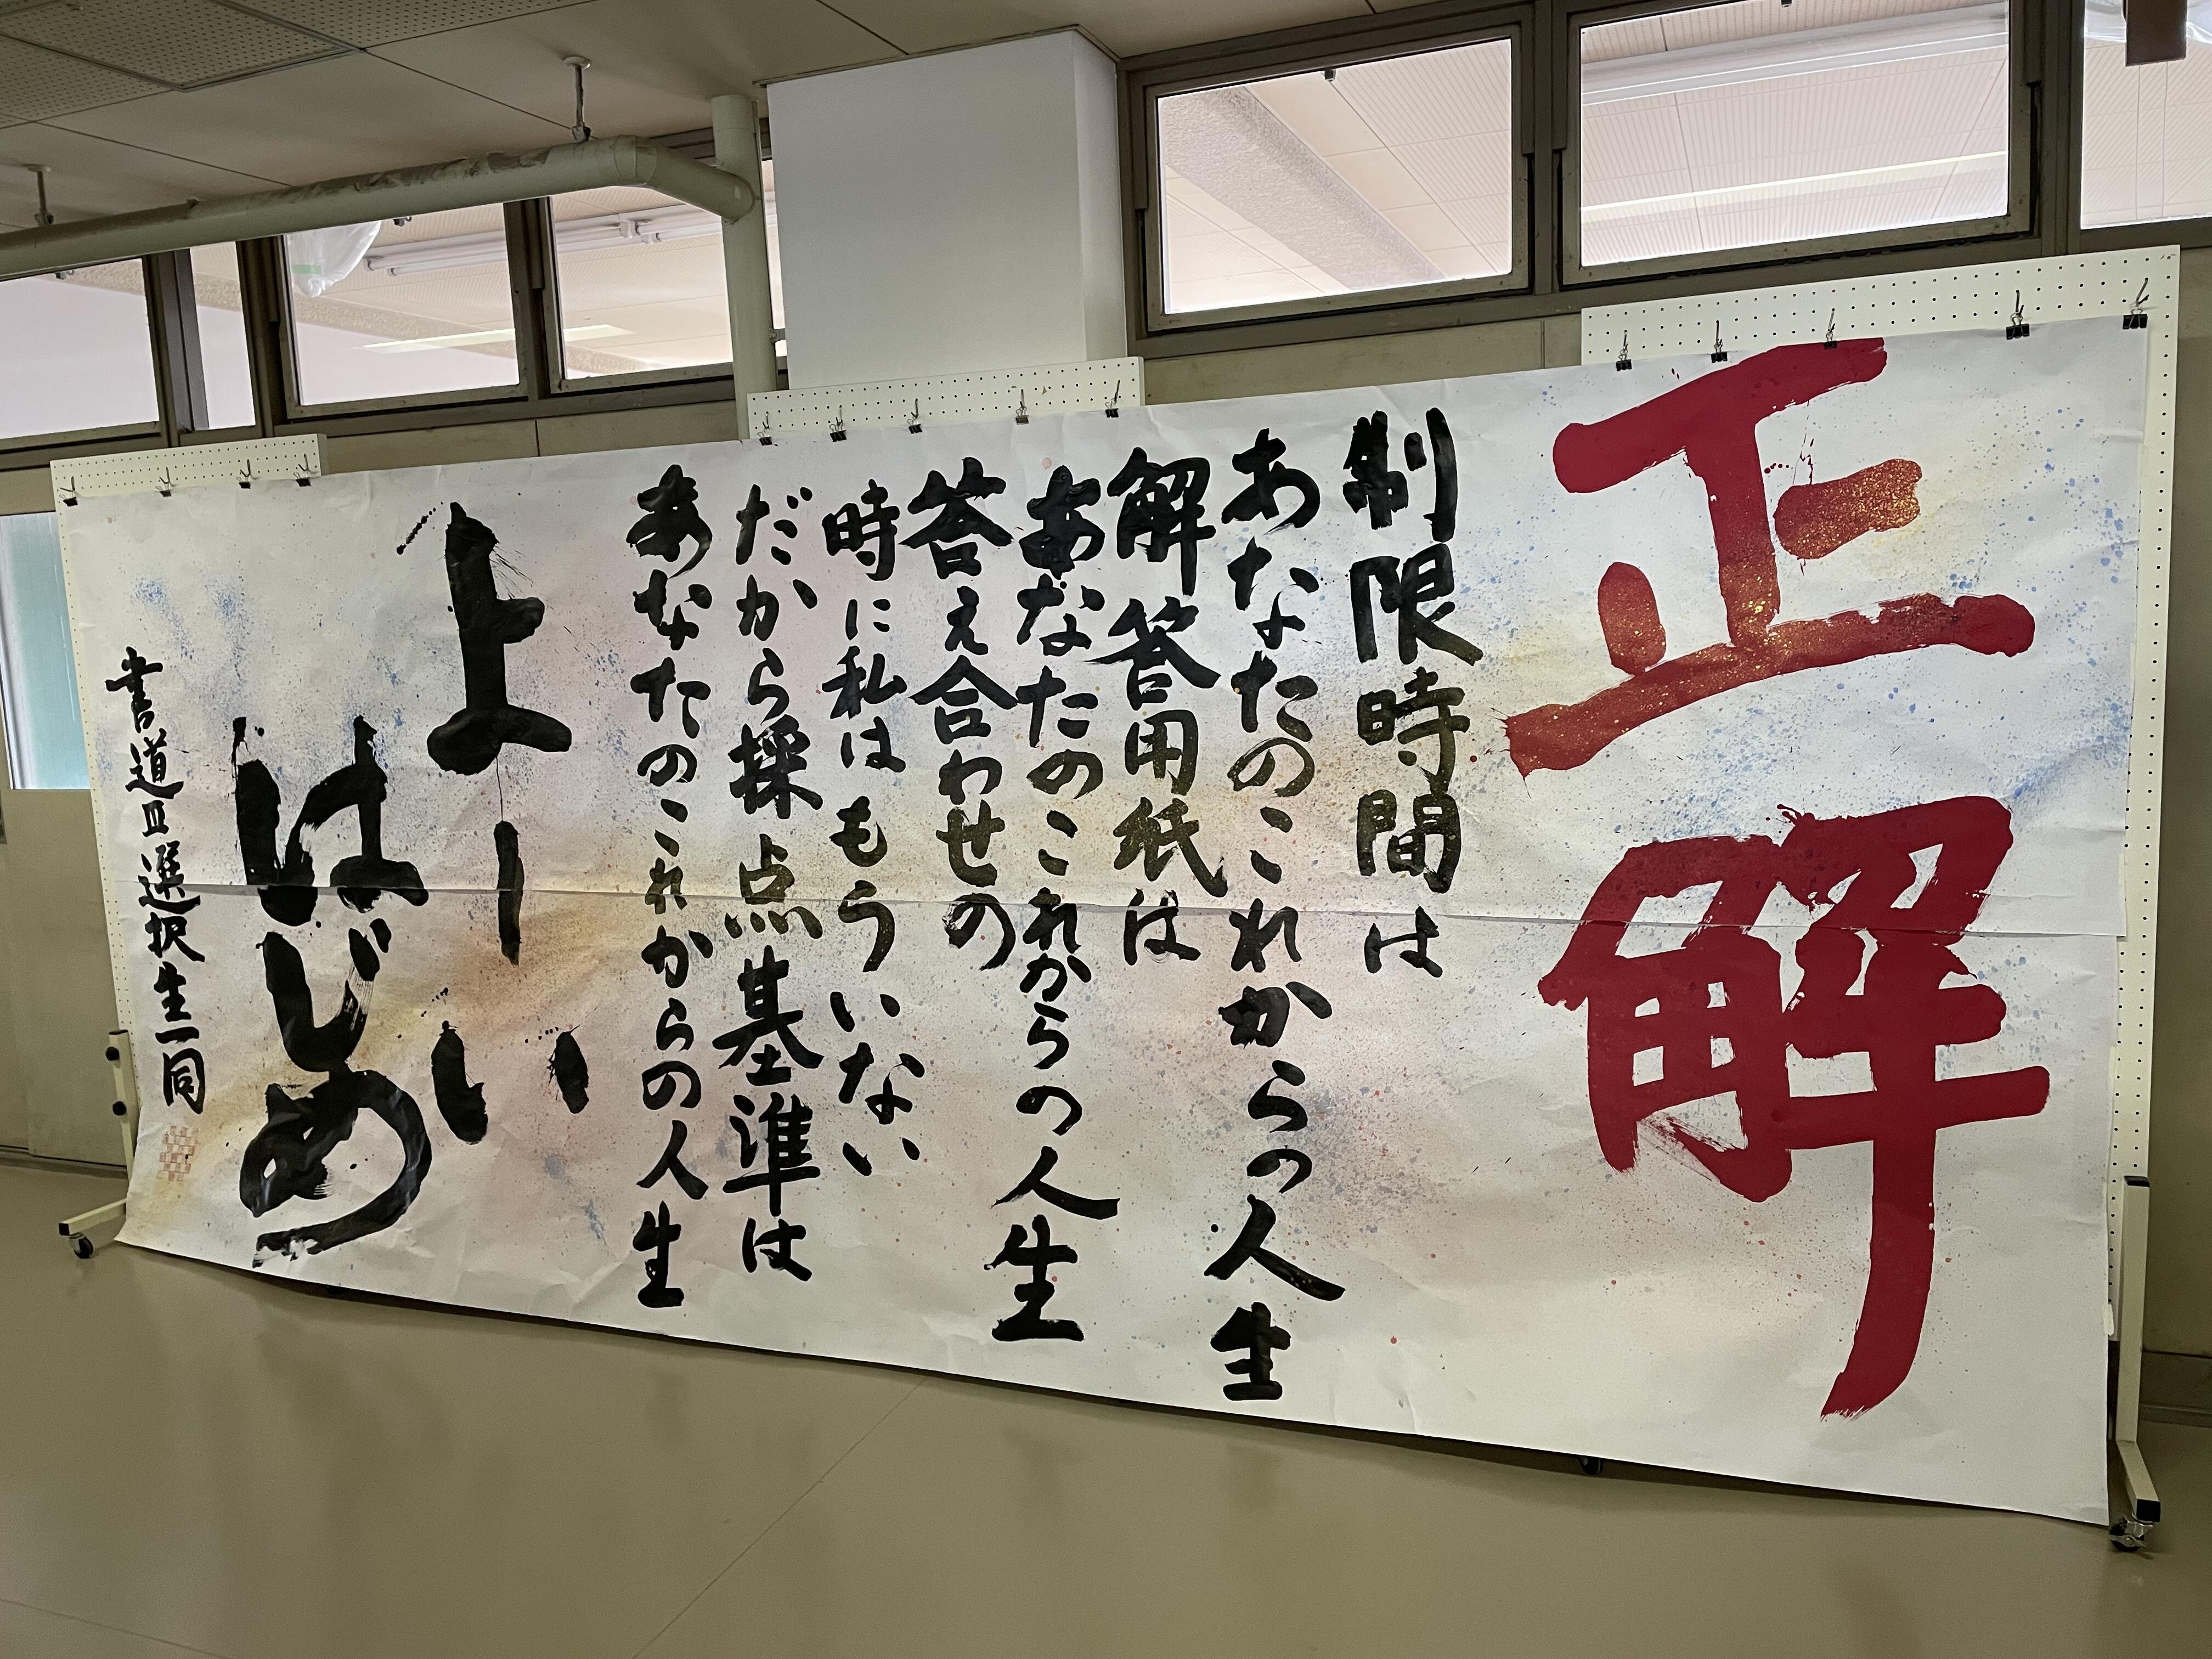 正解
制限時間は
あなたのこれからの人生
解答用紙は
あなたのこれからの人生
答え合わせの
時に私はもういない
だから採点基準は
あなたのこれからの人生
よーい
はじめ
書道Ⅲ選択生一同